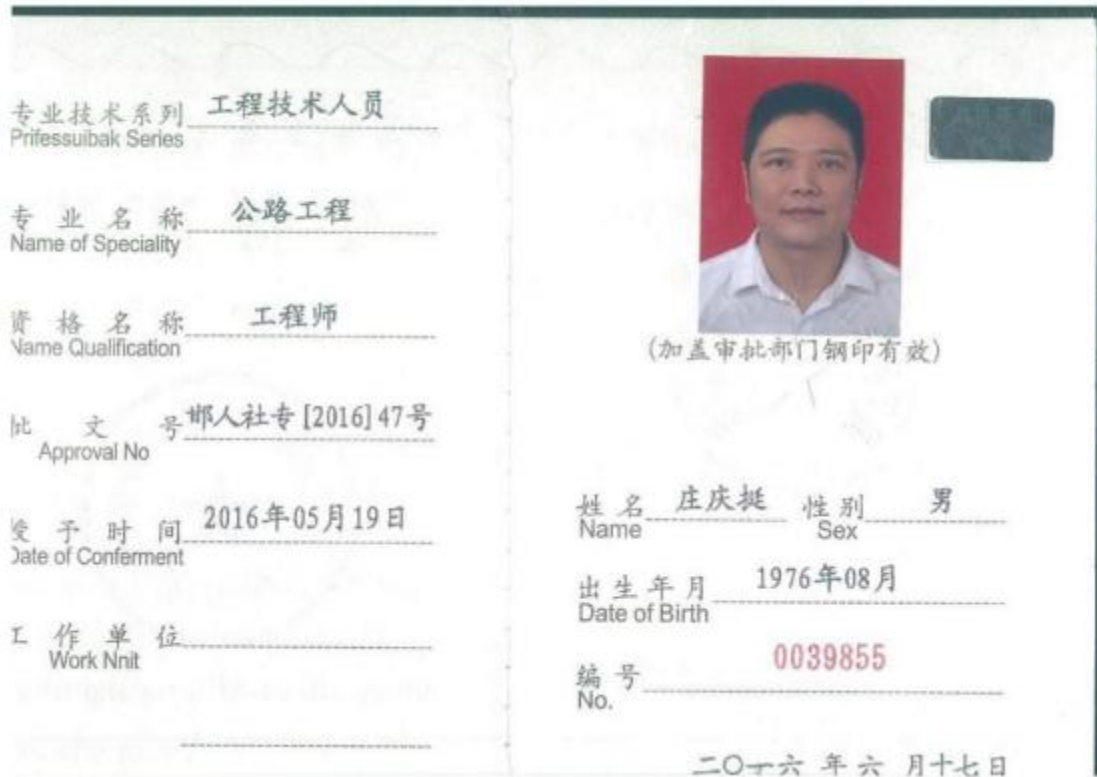 专业技术系列 工程技术人员
Prifessuibak Series
专业名称 公路工程
Name of Speciality
资格名称 工程师
Name Qualification
批文号 邯人社专[2016]47号
Approval No
授予时间 2016年05月19日
Date of Conferment
工作单位
Work Nnit
(加盖审批部门钢印有效)
姓名 庄庆挺 性别 男
Name Sex
出生年月 1976年08月
Date of Birth
编号 0039855
No.
二〇一六年六月十七日